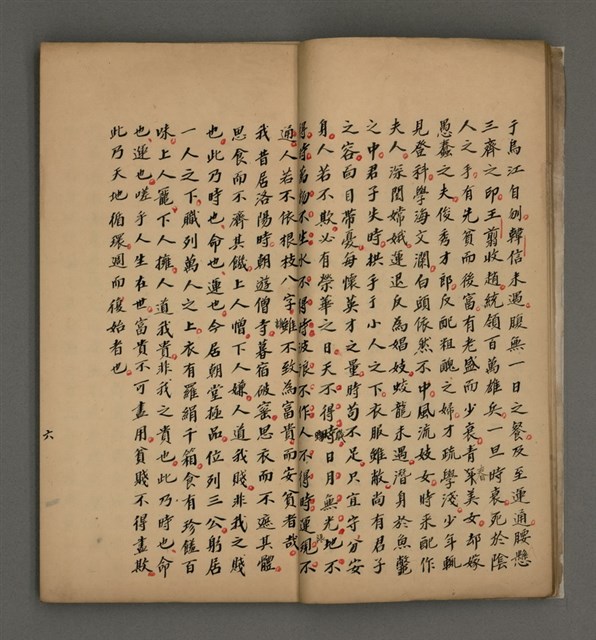 于烏江自刎韓信未遇腹無一日之餐及至運通腰懸
三齊之印王翦收趙統領百萬雄兵一旦時衰死於陰
人之手有先貧而後富有老盛而少衰青春美女却嫁
愚蠢之夫俊秀才郎反配粗醜之婦才疏學淺少年輒
見登科學海文瀾白頭依然不中風流妓女時來配作
夫人深閨嫦娥運退反為娼妓蛟龍未遇潛身於魚鱉
之中君子失時拱手于小人之下衣服雖敝尚有君子
之容面目帶憂每懷英才之量時苟不足只宜守分安
身人若不欺必有榮華之日天不得時日月無光地不
得時萬物不生水不得時波浪不作人不得時運則不
通人若不依根枝八字雖不致為富貴而安貧者哉
我昔居洛陽時朝遊僧寺暮宿破窰思衣而不遮其體
思食而不濟其饑上人憎下人嫌人道我賤非我之賤
也此乃時也命也運也今居朝堂極品位列三公躬居
一人之下職列萬人之上衣有羅絹千箱食有珍饈百
味上人寵下人擁人道我貴非我之貴也此乃時也命
也運也嗟乎人生在世富貴不可盡用貧賤不得盡欺
此乃天地循環週而復始者也
六